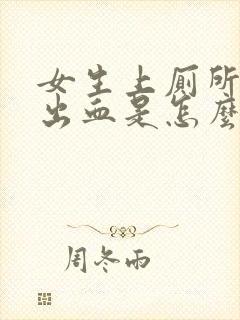 女生上厕所
出血是怎麽
周冬雨